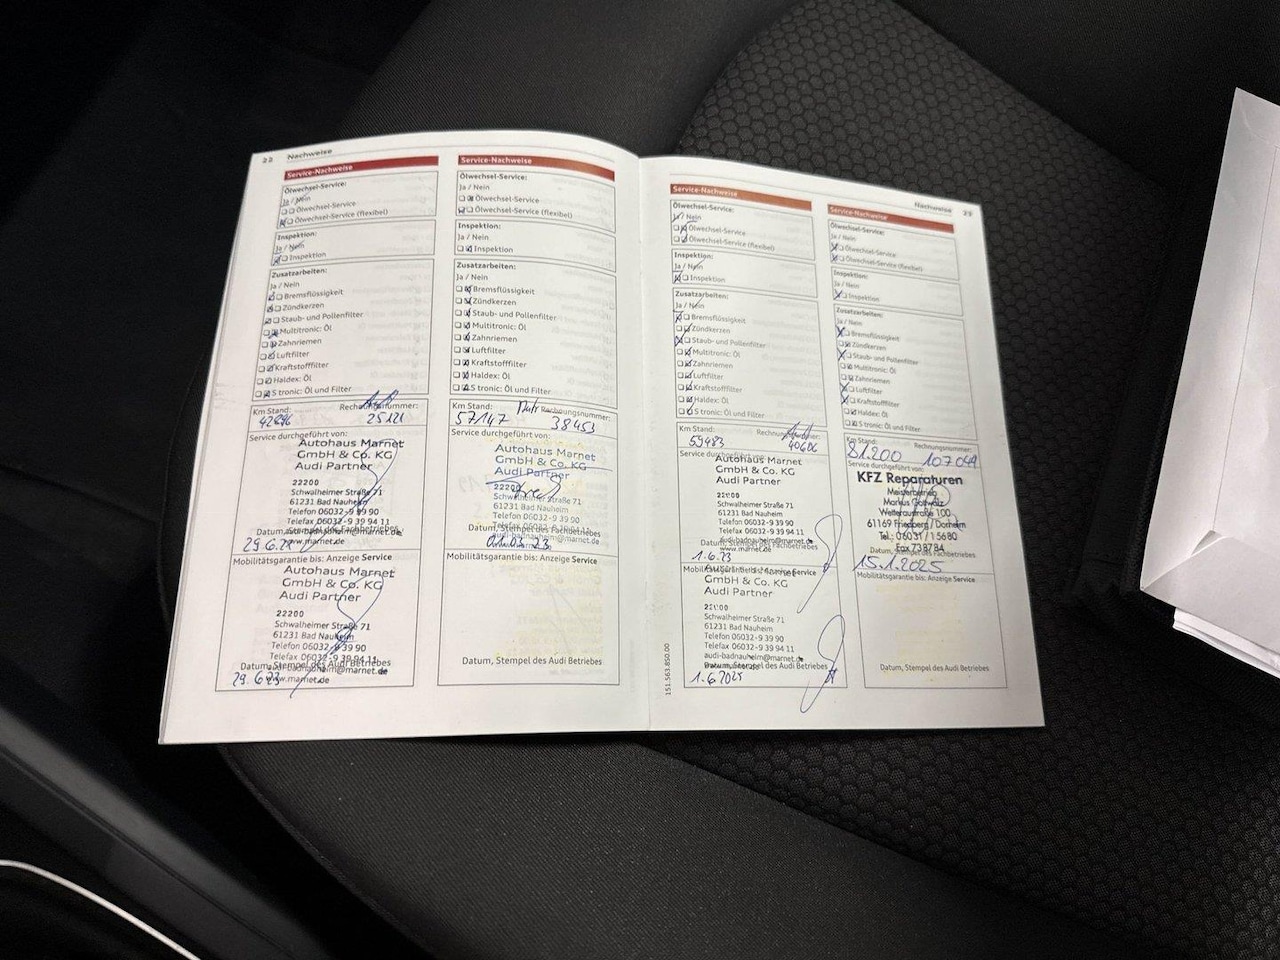 22 Nachweise
Service-Nachweise
Ölwechsel-Service:
Ja / Nein
Ölwechsel-Service
Ölwechsel-Service (flexibel)
Inspektion:
Ja / Nein
Inspektion
Zusatzarbeiten:
Ja / Nein
Bremsflüssigkeit
Zündkerzen
Staub- und Pollenfilter
Multitronic: Öl
Zahnriemen
Luftfilter
Kraftstofffilter
Haldex: Öl
S tronic: Öl und Filter
Km Stand: Rechnungsnummer:
25121
Service durchgeführt von:
Autohaus Marnet
GmbH & Co. KG
Audi Partner
22200
Schwalheimer Straße 71
61231 Bad Nauheim
Telefon 06032-9 39 90
Telefax 06032-9 39 94 11
Datum, Stempel des Fachbetriebes
audi-badnauheim@marnet.de
www.marnet.de
Mobilitätsgarantie bis: Anzeige Service
Autohaus Marnet
GmbH & Co. KG
Audi Partner
22200
Schwalheimer Straße 71
61231 Bad Nauheim
Telefon 06032-9 39 90
Telefax 06032-9 39 94 11
Datum, Stempel des Audi Betriebes
audi-badnauheim@marnet.de
29.6.23 www.marnet.de
Service-Nachweise
Ölwechsel-Service:
Ja / Nein
Ölwechsel-Service
Ölwechsel-Service (flexibel)
Inspektion:
Ja / Nein
Inspektion
Zusatzarbeiten:
Ja / Nein
Bremsflüssigkeit
Zündkerzen
Staub- und Pollenfilter
Multitronic: Öl
Zahnriemen
Luftfilter
Kraftstofffilter
Haldex: Öl
S tronic: Öl und Filter
Km Stand: Rechnungsnummer:
57147 38453
Service durchgeführt von:
Autohaus Marnet
GmbH & Co. KG
Audi Partner
22200
Schwalheimer Straße 71
61231 Bad Nauheim
Telefon 06032-9 39 90
Telefax 06032-9 39 94 11
Datum, Stempel des Fachbetriebes
Mobilitätsgarantie bis: Anzeige Service
Datum, Stempel des Audi Betriebes
Nachweise 23
Service-Nachweise
Ölwechsel-Service:
Ja / Nein
Ölwechsel-Service
Ölwechsel-Service (flexibel)
Inspektion:
Ja / Nein
Inspektion
Zusatzarbeiten:
Ja / Nein
Bremsflüssigkeit
Zündkerzen
Staub- und Pollenfilter
Multitronic: Öl
Zahnriemen
Luftfilter
Kraftstofffilter
Haldex: Öl
S tronic: Öl und Filter
Km Stand: Rechnungsnummer:
59483 40606
Service durchgeführt von:
Autohaus Marnet
GmbH & Co. KG
Audi Partner
Schwalheimer Straße 71
61231 Bad Nauheim
Telefon 06032-9 39 90
Telefax 06032-9 39 94 11
audi-badnauheim@marnet.de
Datum, Stempel des Fachbetriebes
www.marnet.de
1.6.23
Mobilitätsgarantie bis: Anzeige Service
Autohaus Marnet
GmbH & Co. KG
Audi Partner
Schwalheimer Straße 71
61231 Bad Nauheim
Telefon 06032-9 39 90
Telefax 06032-9 39 94 11
audi-badnauheim@marnet.de
Datum, Stempel des Audi Betriebes
1.6.2025
151.563.850.00
Service-Nachweise
Ölwechsel-Service:
Ja / Nein
Ölwechsel-Service
Ölwechsel-Service (flexibel)
Inspektion:
Ja / Nein
Inspektion
Zusatzarbeiten:
Ja / Nein
Bremsflüssigkeit
Zündkerzen
Staub- und Pollenfilter
Multitronic: Öl
Zahnriemen
Luftfilter
Kraftstofffilter
Haldex: Öl
S tronic: Öl und Filter
Km Stand: Rechnungsnummer:
81.200
Service durchgeführt von:
KFZ Reparaturen
Meisterbetrieb
61169 Friedberg / Dorheim
Tel.: 06031 / 15680
Fax 738784
Datum, Stempel des Fachbetriebes
15.1.2025
Mobilitätsgarantie bis: Anzeige Service
Datum, Stempel des Audi Betriebes